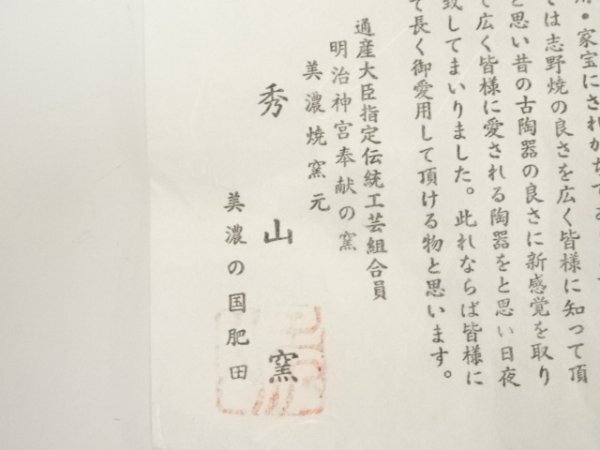 ・家宝にされがちであ
は志野焼の良さを広く皆様に知って頂
と思い昔の古陶器の良さに新感覚を取り
て広く皆様に愛される陶器をと思い日夜
致してまいりました。此れならば皆様に
て長く御愛用して頂ける物と思います。
通産大臣指定伝統工芸組合員
明治神宮奉献の窯
美濃焼窯元
秀山窯
美濃の国肥田